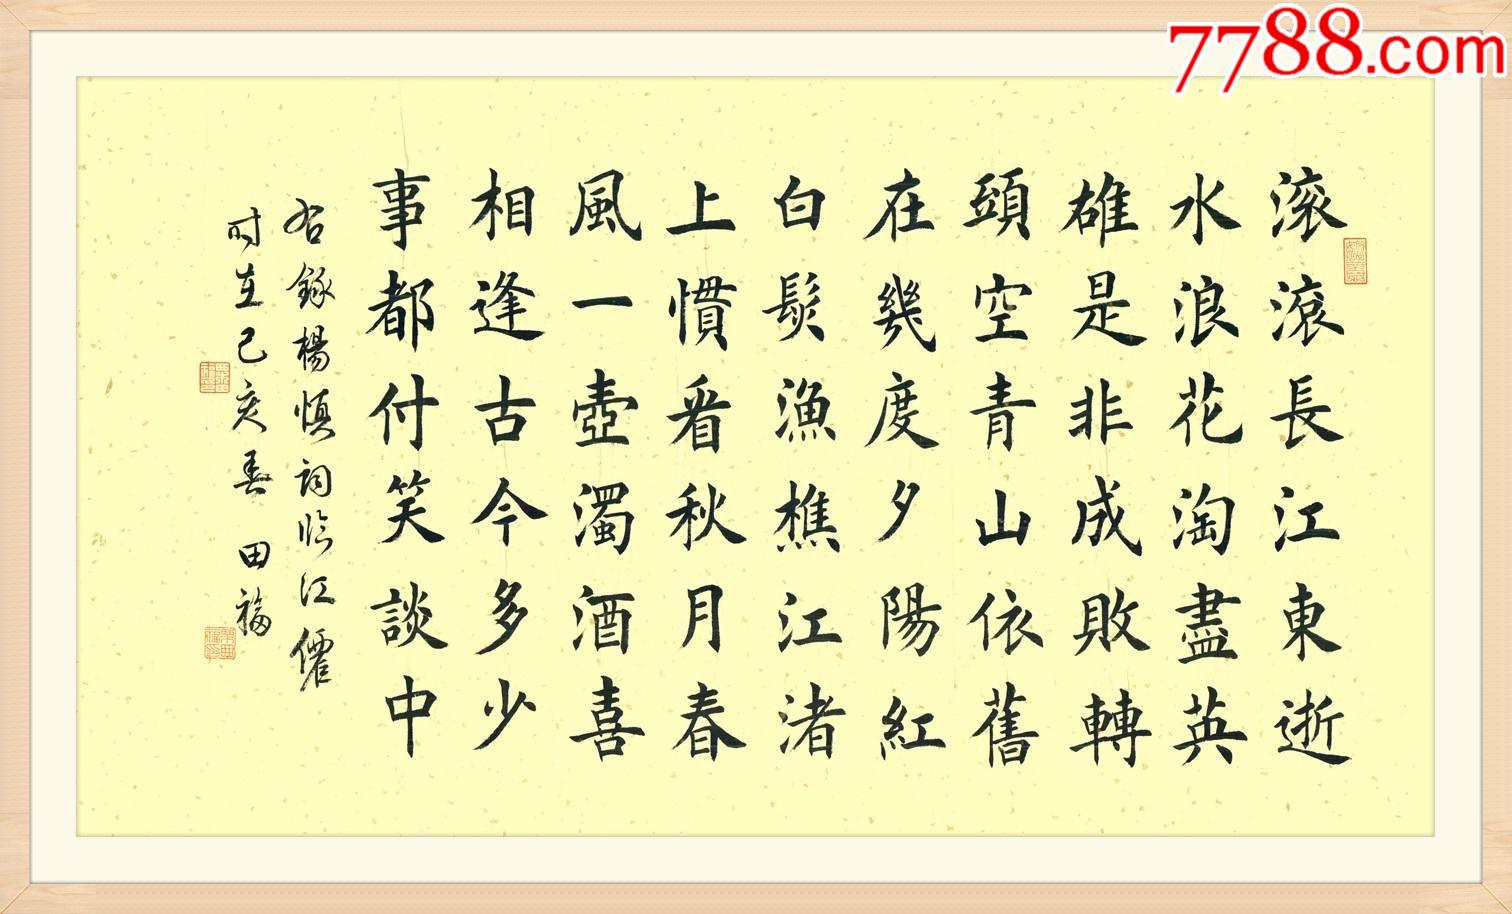 7788.com
滚滚長江東逝
水浪花淘盡英
雄是非成敗轉
頭空青山依舊
在幾度夕陽紅
白髮漁樵江渚
上慣看秋月春
風一壺濁酒喜
相逢古今多少
事都付笑談中
右錄楊慎詞臨江僊
时在己亥春 田福